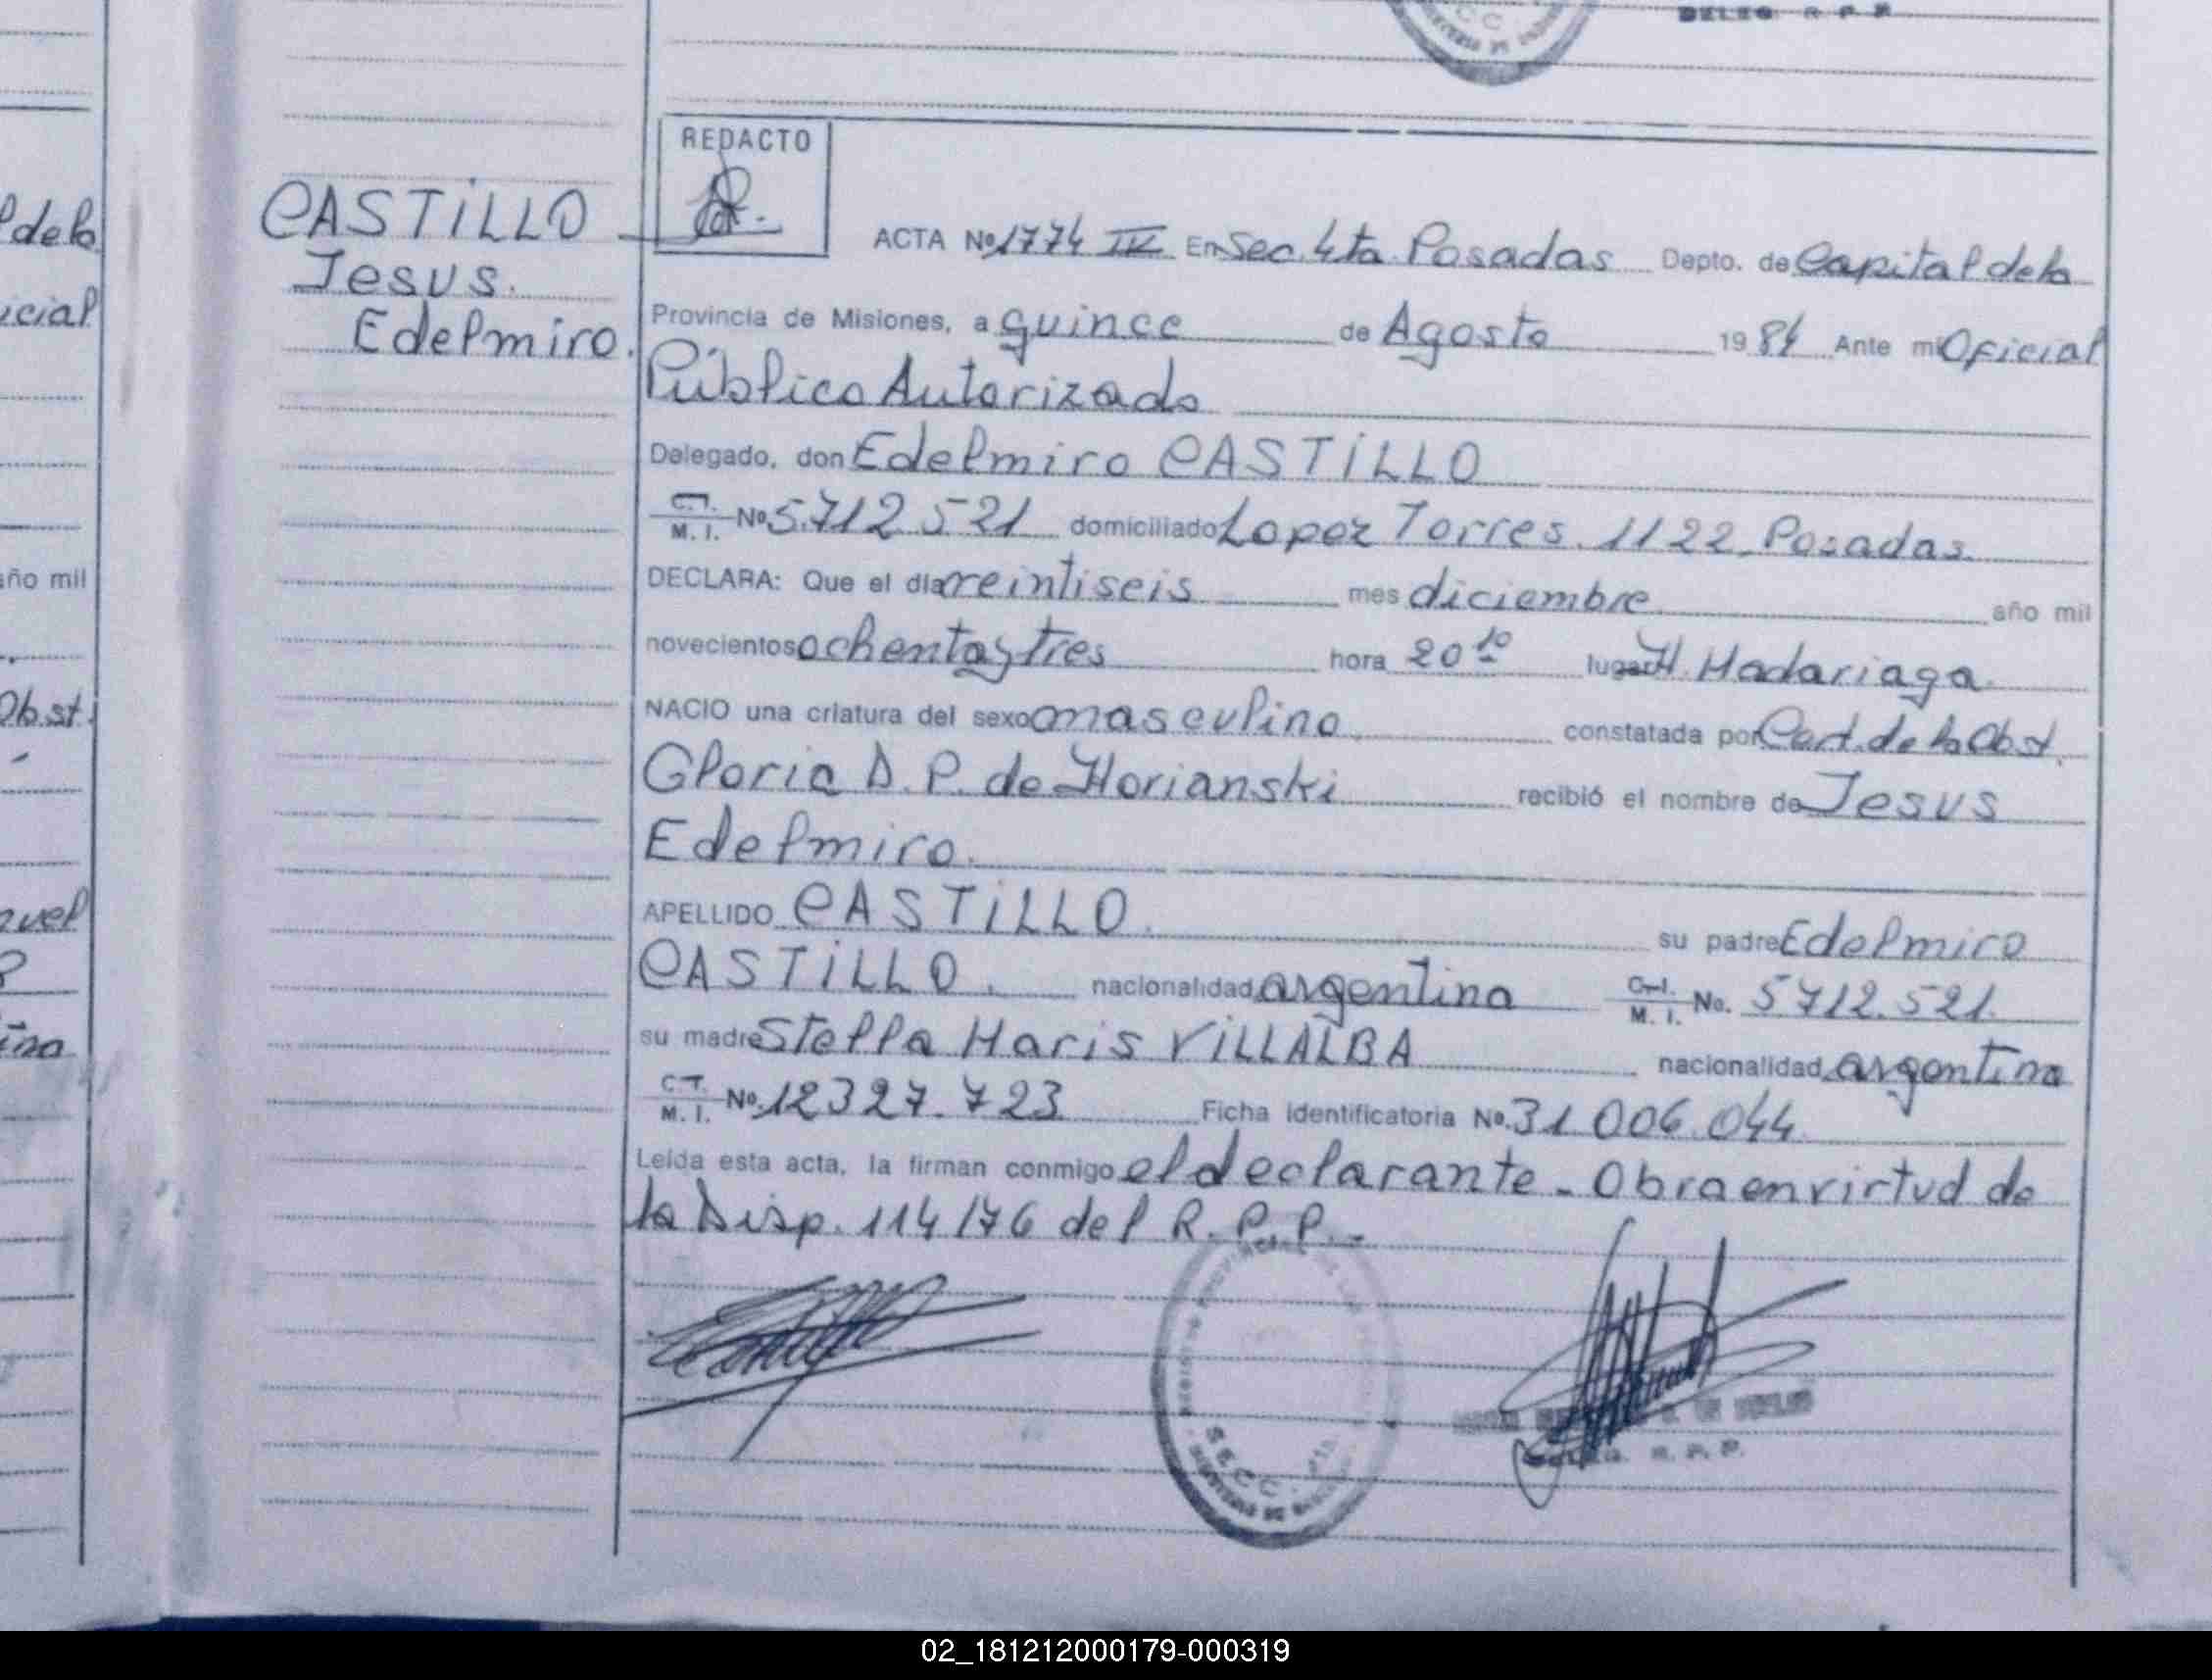 DELEG. R. P. P.
REDACTO
CASTILLO
Jesus.
Edelmiro.
ACTA Nº 1774 IV En Sec. 4ta. Posadas Depto. de Capital de la
Provincia de Misiones, a quince de Agosto 1984 Ante mi Oficial
Público Autorizado
Delegado, don Edelmiro CASTILLO
C.I. M. I. Nº 5.712.521 domiciliado Lopez Torres. 1122. Posadas.
DECLARA: Que el día veintiseis mes diciembre año mil
novecientos ochenta y tres hora 20 10 lugar H. Madariaga.
NACIO una criatura del sexo masculino. constatada por Cert. de la Obst.
Gloria D. P. de Horianski recibió el nombre de Jesus
Edelmiro.
APELLIDO CASTILLO. su padre Edelmiro
CASTILLO. nacionalidad argentina C.I. M. I. No. 5712.521.
su madre Stella Maris VILLALBA nacionalidad argentina
C.I. M. I. Nº 12327.723 Ficha Identificatoria Nº 31.006.044
Leída esta acta, la firman conmigo el declarante - Obra en virtud de
la Disp. 114/76 del R. P. P. -
SECC. 4ta.
R. P. P.
de la
icial
año mil
Obst.
02_181212000179-000319